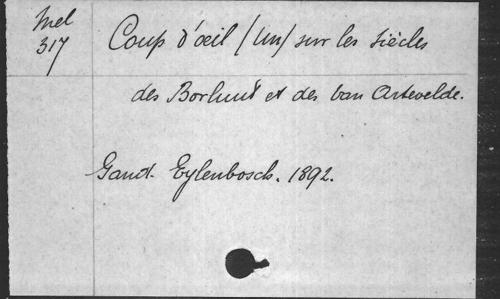 Mel
317
Coup d'œil (un) sur les siècles
des Borluut et des van Artevelde.
Gand. Eylenbosch. 1892.